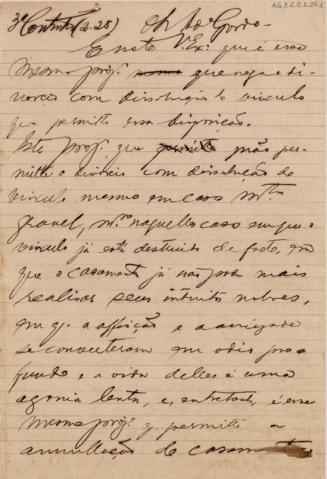 AG3.2.5.1.26-2
3º (2-28) Ad. Gordo.
E note V. Ex. que é esse
mesmo proj. que nega o di-
vorcio com dissolução do vinculo
que permitte essa disposição.
Este proj. que não per-
mitte o divorcio com dissolução do
vinculo mesmo em caso mto.
grave, mmo. naquelles casos em que o
vinculo já está destruido de facto, em
que o casamento já não pode mais
realisar seus intuitos nobres,
em q. a affeição e a amizade
se converteram em odio pro-
fundo e a vida delles é uma
agonia lenta, e, entretanto, é esse
mesmo proj. q. permitte a
annullação de casamento